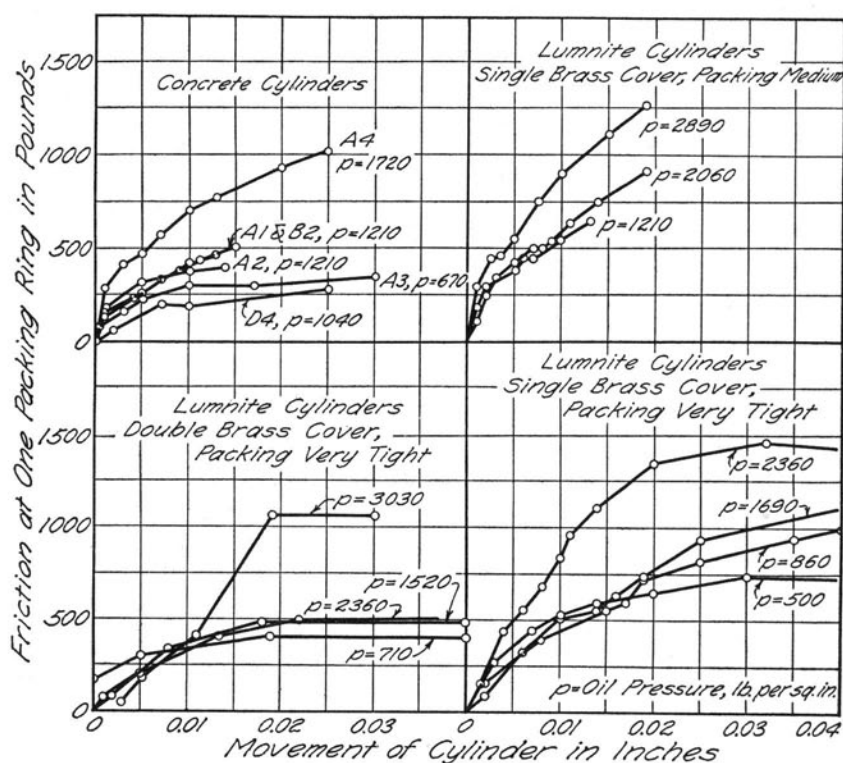 Friction at One Packing Ring in Pounds
1500
1000
500
0
Concrete Cylinders
A4
p=1720
A1 & B2, p=1210
A2, p=1210
A3, p=670
D4, p=1040
Lumnite Cylinders
Single Brass Cover, Packing Medium
p=2890
p=2060
p=1210
Lumnite Cylinders
Double Brass Cover,
Packing Very Tight
1500
1000
500
0
p=3030
p=1520
p=2360
p=710
Lumnite Cylinders
Single Brass Cover,
Packing Very Tight
p=2360
p=1690
p=860
p=500
p=Oil Pressure, lb. per sq. in.
0 0.01 0.02 0.03 0 0.01 0.02 0.03 0.04
Movement of Cylinder in Inches